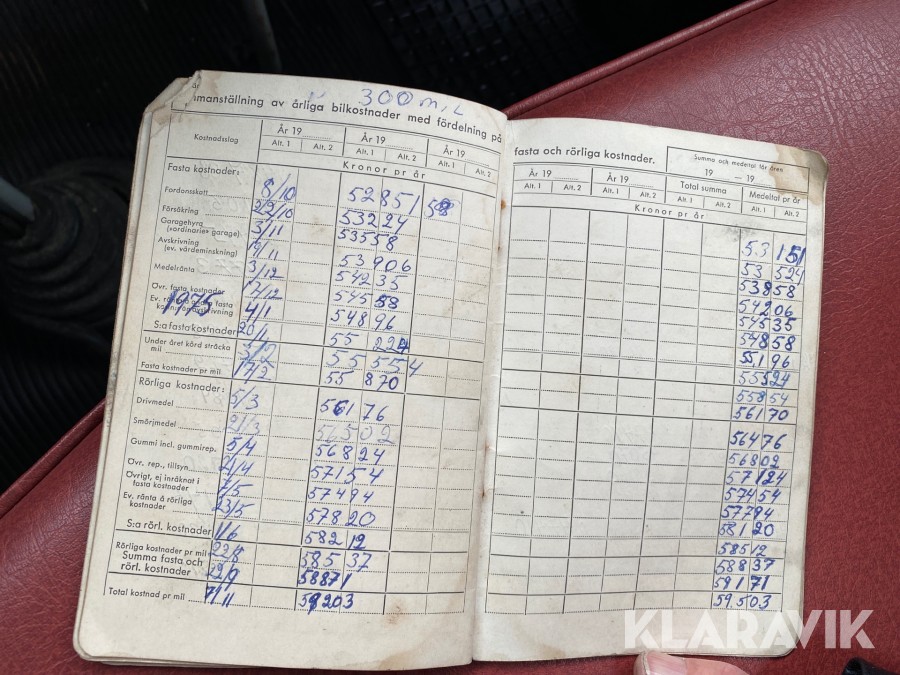 300 mil
manställning av årliga bilkostnader med fördelning på
Kostnadsslag År 19 År 19 År 19
Alt. 1 Alt. 2 Alt. 1 Alt. 2 Alt. 1 Alt. 2
Kronor pr år
Fasta kostnader:
Fordonsskatt 8/10 52851
Försäkring 22/10 53224
Garagehyra
(»ordinarie» garage) 3/11 53558
Avskrivning
(ev. värdeminskning) /11 53906
Medelränta 3/12 54235
Övr. fasta kostnader 17/12 54558
Ev. ränta å fasta
1975 4/1 54896
S:a fasta kostnader 20/1 55 224
Under året körd sträcka
mil 3/2 55 554
Fasta kostnader pr mil 17/2 55 870
Rörliga kostnader:
Drivmedel 5/3 56176
Smörjmedel 21/3 56502
Gummi inkl. gummirep. 5/4 56824
Övr. rep., tillsyn 21/4 57154
Övrigt, ej inräknat i
fasta kostnader 7/5 57494
Ev. ränta å rörliga
kostnader 23/5 57820
S:a rörl. kostnader 11/6 58212
Rörliga kostnader pr mil 22/8 58537
Summa fasta och
rörl. kostnader /9 58871
Total kostnad pr mil 7/11 59203
fasta och rörliga kostnader.
Summa och medeltal för åren
19 — 19
År 19 År 19 Total summa Medeltal pr år
Alt. 1 Alt. 2 Alt. 1 Alt. 2 Alt. 1 Alt. 2 Alt. 1 Alt. 2
Kronor pr år
53151
53 524
53858
54206
54535
54858
55196
55524
55854
56170
56476
56802
57124
57454
57794
58120
58512
58837
59171
59.503
KLARAVIK